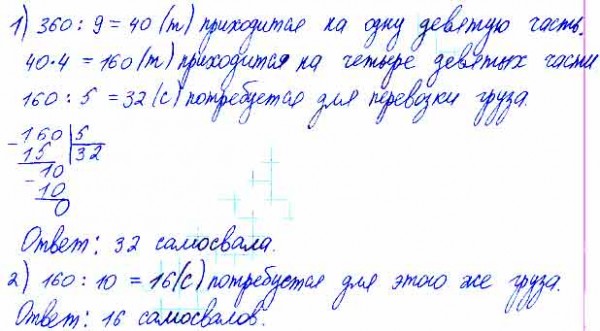 1) 360 : 9 = 40 (т) приходится на одну девятую часть.
40 · 4 = 160 (т) приходится на четыре девятых части
160 : 5 = 32 (с) потребуется для перевозки груза.
- 160 | 5
15 | 32
- 10
10
0
Ответ: 32 самосвала.
2) 160 : 10 = 16 (с) потребуется для этого же груза.
Ответ: 16 самосвалов.